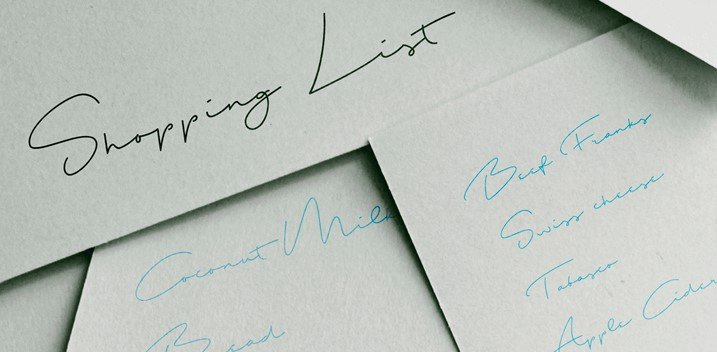 Shopping List
Coconut Milk
Bread
Beef Franks
Swiss cheese
Tabasco
Apple Cider